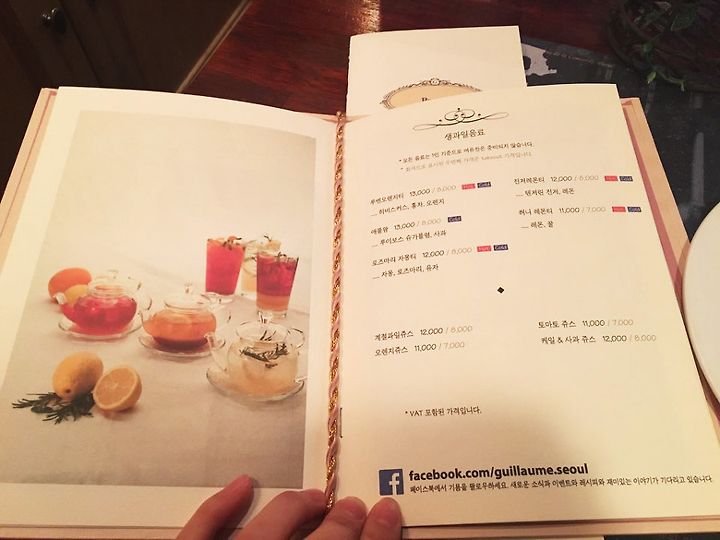 생과일음료
* 모든 음료는 1인 기준으로 머그잔은 준비되지 않습니다.
* 회색으로 표시된 두번째 가격은 takeout 가격입니다.
루벤오렌지티 13,000 / 8,000 Hot Cold
__ 히비스커스, 홍차, 오렌지
애플팜 13,000 / 8,000 Cold
__ 루이보스 슈가플럼, 사과
로즈마리 자몽티 12,000 / 8,000 Hot Cold
__ 자몽, 로즈마리, 유자
진저레몬티 12,000 / 8,000 Hot Cold
__ 텐저린 진저, 레몬
허니 레몬티 11,000 / 7,000 Hot Cold
__ 레몬, 꿀
계절과일쥬스 12,000 / 8,000
오렌지쥬스 11,000 / 7,000
토마토 쥬스 11,000 / 7,000
케일 & 사과 쥬스 12,000 / 8,000
* VAT 포함된 가격입니다.
facebook.com/guillaume.seoul
페이스북에서 기욤을 팔로우하세요. 새로운 소식과 이벤트와 레시피와 재미있는 이야기가 기다리고 있습니다.